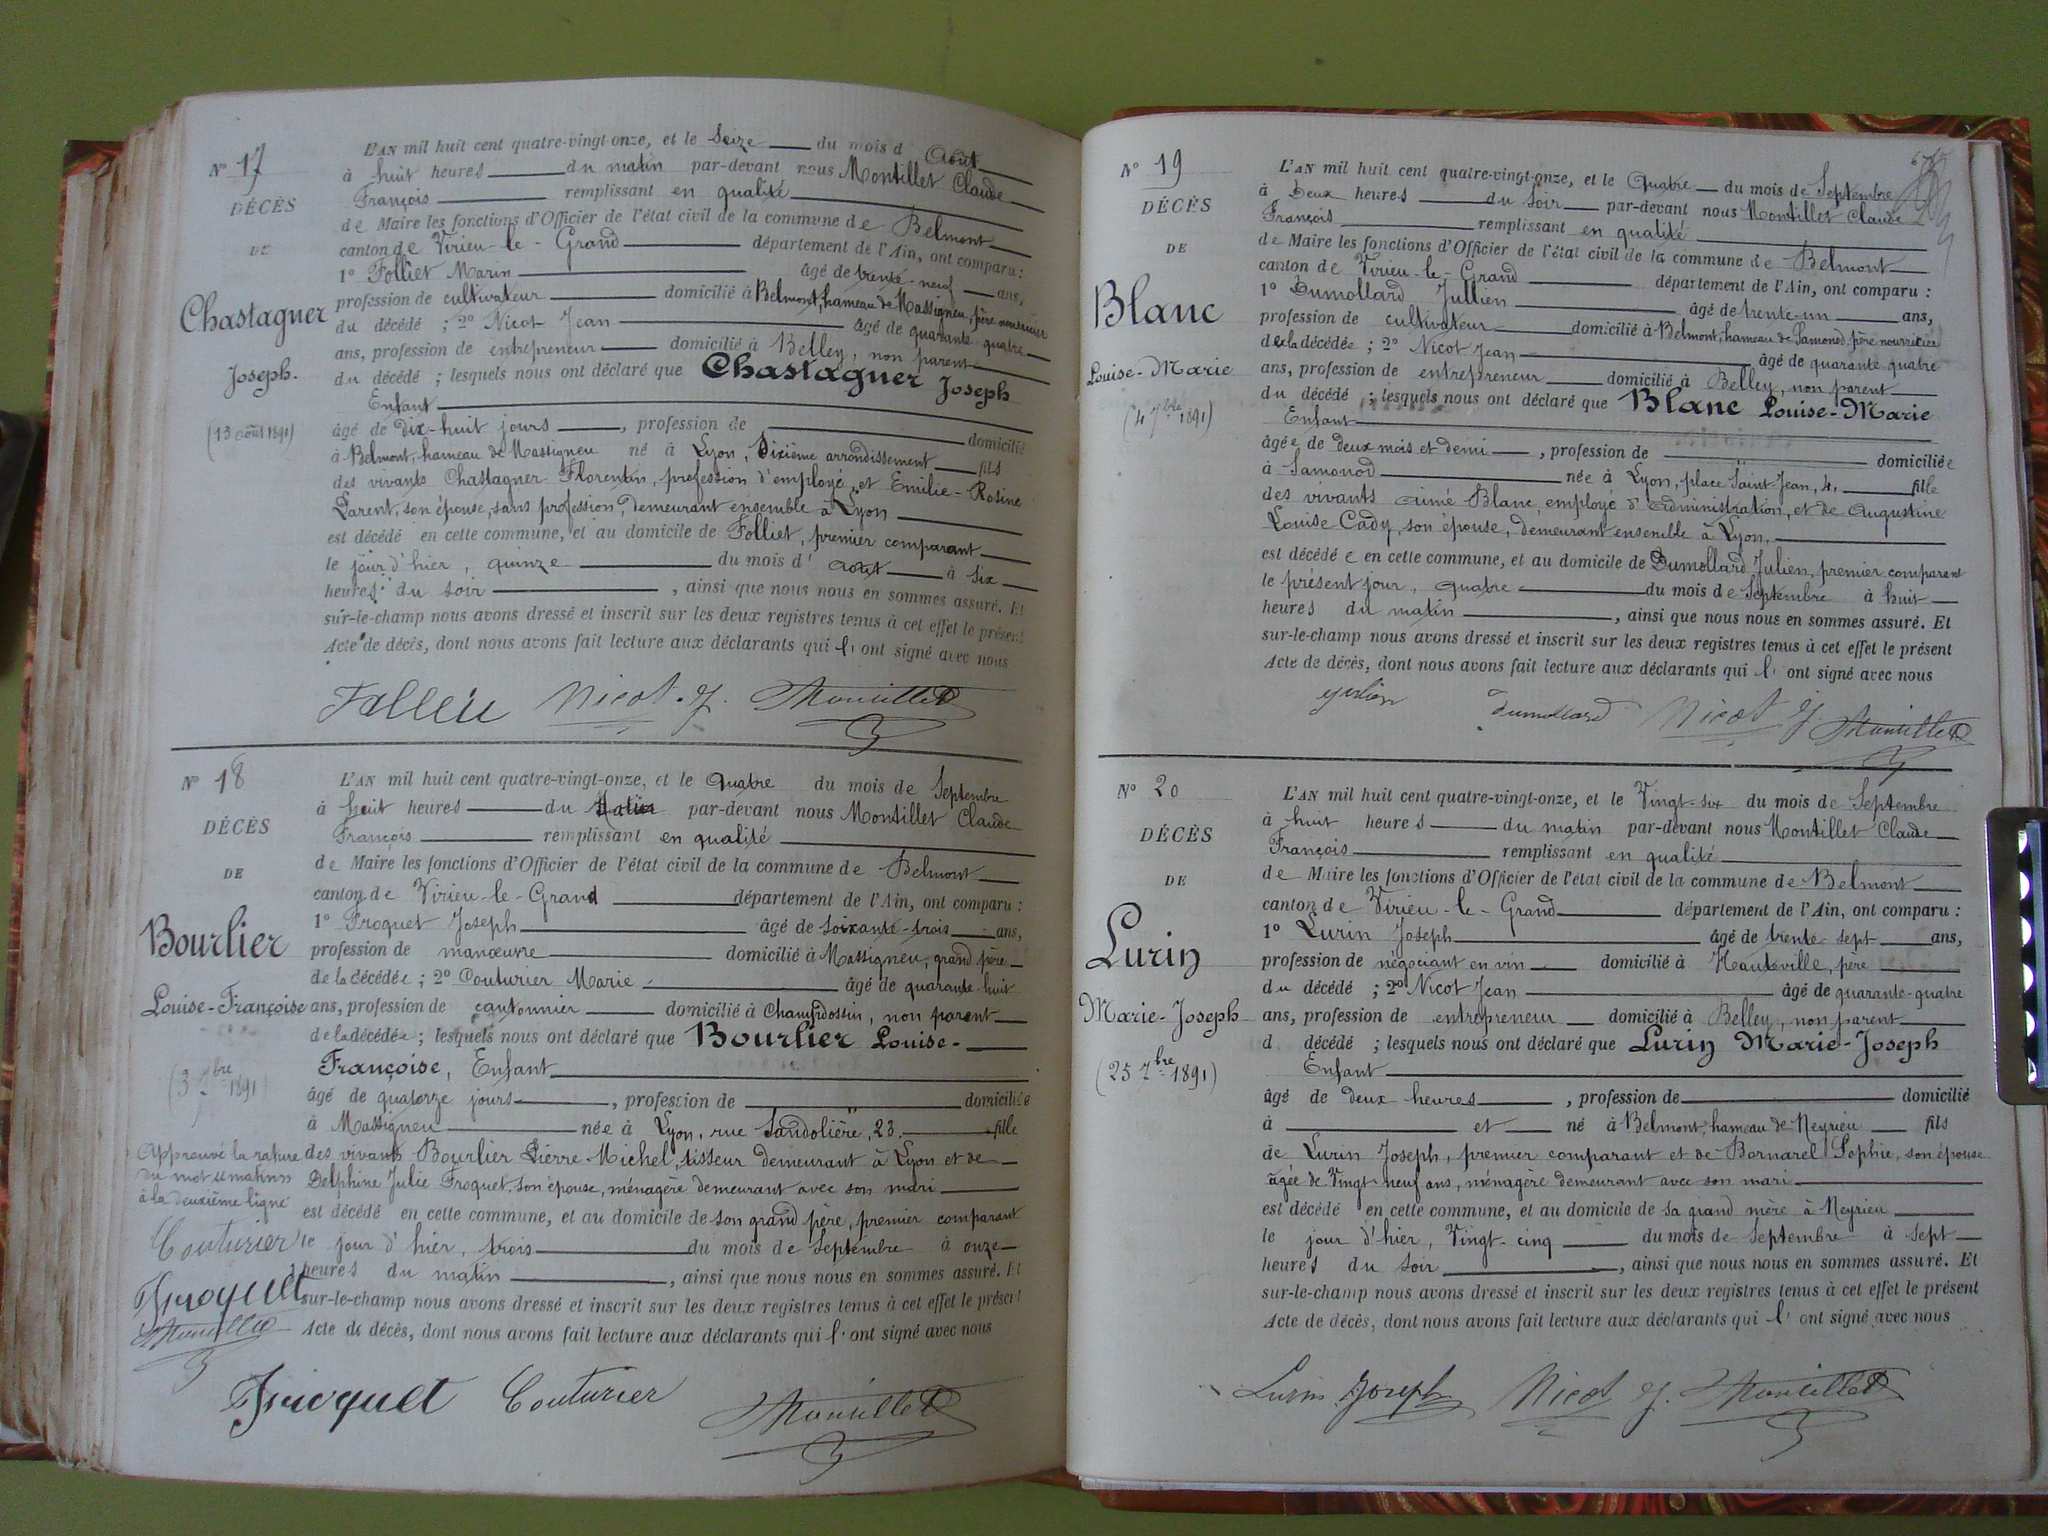 N° 17
DÉCÈS
DE
Chastagner
Joseph.
(13 août 1891)
L'AN mil huit cent quatre-vingt-onze, et le Seize du mois d Août
à huit heures du matin par-devant nous Montillet Claude
François remplissant en qualité
de Maire les fonctions d'Officier de l'état civil de la commune de Belmont
canton de Virieu-le-Grand département de l'Ain, ont comparu :
1° Folliet Marin âgé de trente-neuf ans,
profession de cultivateur domicilié à Belmont, hameau de Massigneu, père nourricier
du décédé ; 2° Nicot Jean âgé de quarante quatre
ans, profession de entrepreneur domicilié à Belley, non parent
du décédé ; lesquels nous ont déclaré que Chastagner Joseph
Enfant
âgé de dix-huit jours, profession de domicilié
à Belmont, hameau de Massigneu né à Lyon, Sixième arrondissement fils
des vivants Chastagner Florentin, profession d'employé, et Emilie-Rosine
Larent, son épouse, sans profession, demeurant ensemble à Lyon
est décédé en cette commune, et au domicile de Folliet, premier comparant
le jour d'hier, quinze du mois d' août à six
heures du soir, ainsi que nous nous en sommes assuré. Et
sur-le-champ nous avons dressé et inscrit sur les deux registres tenus à cet effet le présent
Acte de décès, dont nous avons fait lecture aux déclarants qui l' ont signé avec nous
Nicot. J. Montillet
N° 18
DÉCÈS
DE
Bourlier
Louise-Françoise
(3 7bre 1891)
Approuvé la rature
du mot "matin"
à la deuxième ligne
Couturier
Froquet
Montillet
L'AN mil huit cent quatre-vingt-onze, et le Quatre du mois de Septembre
à huit heures du Matin par-devant nous Montillet Claude
François remplissant en qualité
de Maire les fonctions d'Officier de l'état civil de la commune de Belmont
canton de Virieu-le-Grand département de l'Ain, ont comparu :
1° Froquet Joseph âgé de soixante-trois ans,
profession de manœuvre domicilié à Massigneu, grand père
de la décédée ; 2° Couturier Marie âgé de quarante-huit
ans, profession de cantonnier domicilié à Champdossin, non parent
de la décédée ; lesquels nous ont déclaré que Bourlier Louise-
Françoise, Enfant
âgé de quatorze jours, profession de domiciliée
à Massigneu née à Lyon, rue Sandolière, 23. fille
des vivants Bourlier Pierre-Michel, tisseur demeurant à Lyon et de
Delphine Julie Froquet, son épouse, ménagère demeurant avec son mari
est décédé en cette commune, et au domicile de son grand père, premier comparant
le jour d'hier, trois du mois de Septembre à onze
heures du matin, ainsi que nous nous en sommes assuré. Et
sur-le-champ nous avons dressé et inscrit sur les deux registres tenus à cet effet le présent
Acte de décès, dont nous avons fait lecture aux déclarants qui l' ont signé avec nous
Froquet Couturier Montillet
N° 19
DÉCÈS
DE
Blanc
Louise-Marie
(4 7bre 1891)
L'AN mil huit cent quatre-vingt-onze, et le Quatre du mois de Septembre
à Deux heures du soir par-devant nous Montillet Claude
François remplissant en qualité
de Maire les fonctions d'Officier de l'état civil de la commune de Belmont
canton de Virieu-le-Grand département de l'Ain, ont comparu :
1° Dumollard Jullien âgé de trente-un ans,
profession de cultivateur domicilié à Belmont, hameau de Samonod, père nourricier
de la décédée ; 2° Nicot Jean âgé de quarante quatre
ans, profession de entrepreneur domicilié à Belley, non parent
du décédé ; lesquels nous ont déclaré que Blanc Louise-Marie
Enfant
âgée de deux mois et demi, profession de domiciliée
à Samonod née à Lyon, place Saint-Jean, 4, fille
des vivants Aimé Blanc, employé d'administration, et de Augustine
Louise Cady, son épouse, demeurant ensemble à Lyon,
est décédée en cette commune, et au domicile de Dumollard Julien, premier comparent
le présent jour, quatre du mois de Septembre à huit
heures du matin, ainsi que nous nous en sommes assuré. Et
sur-le-champ nous avons dressé et inscrit sur les deux registres tenus à cet effet le présent
Acte de décès, dont nous avons fait lecture aux déclarants qui l' ont signé avec nous
Dumollard Nicot J. Montillet
N° 20
DÉCÈS
DE
Lurin
Marie-Joseph
(25 7bre 1891)
L'AN mil huit cent quatre-vingt-onze, et le Vingt-six du mois de Septembre
à huit heures du matin par-devant nous Montillet Claude
François remplissant en qualité
de Maire les fonctions d'Officier de l'état civil de la commune de Belmont
canton de Virieu-le-Grand département de l'Ain, ont comparu :
1° Lurin Joseph âgé de trente sept ans,
profession de négociant en vin domicilié à Hauteville, père
du décédé ; 2° Nicot Jean âgé de quarante-quatre
ans, profession de entrepreneur domicilié à Belley, non parent
d décédé ; lesquels nous ont déclaré que Lurin Marie-Joseph
Enfant
âgé de deux heures, profession de domicilié
à et né à Belmont, hameau de Neyrieu fils
de Lurin Joseph, premier comparant et de Bornarel Sophie, son épouse
âgée de Vingt neuf ans, ménagère demeurant avec son mari
est décédé en cette commune, et au domicile de sa grand mère à Neyrieu
le jour d'hier, Vingt-cinq du mois de Septembre à sept
heures du soir, ainsi que nous nous en sommes assuré. Et
sur-le-champ nous avons dressé et inscrit sur les deux registres tenus à cet effet le présent
Acte de décès, dont nous avons fait lecture aux déclarants qui l' ont signé avec nous
Lurin Joseph Nicot J. Montillet